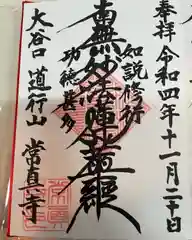 奉拝 令和四年十一月二十日
如説修行
南無妙法蓮華経
功徳甚多
大谷口 道行山
常真寺